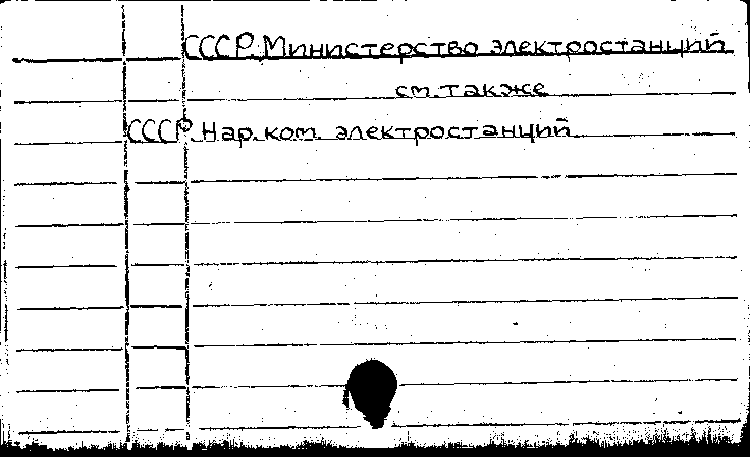 СССР. Министерство электростанций
см. также
СССР. Нар. ком. электростанций